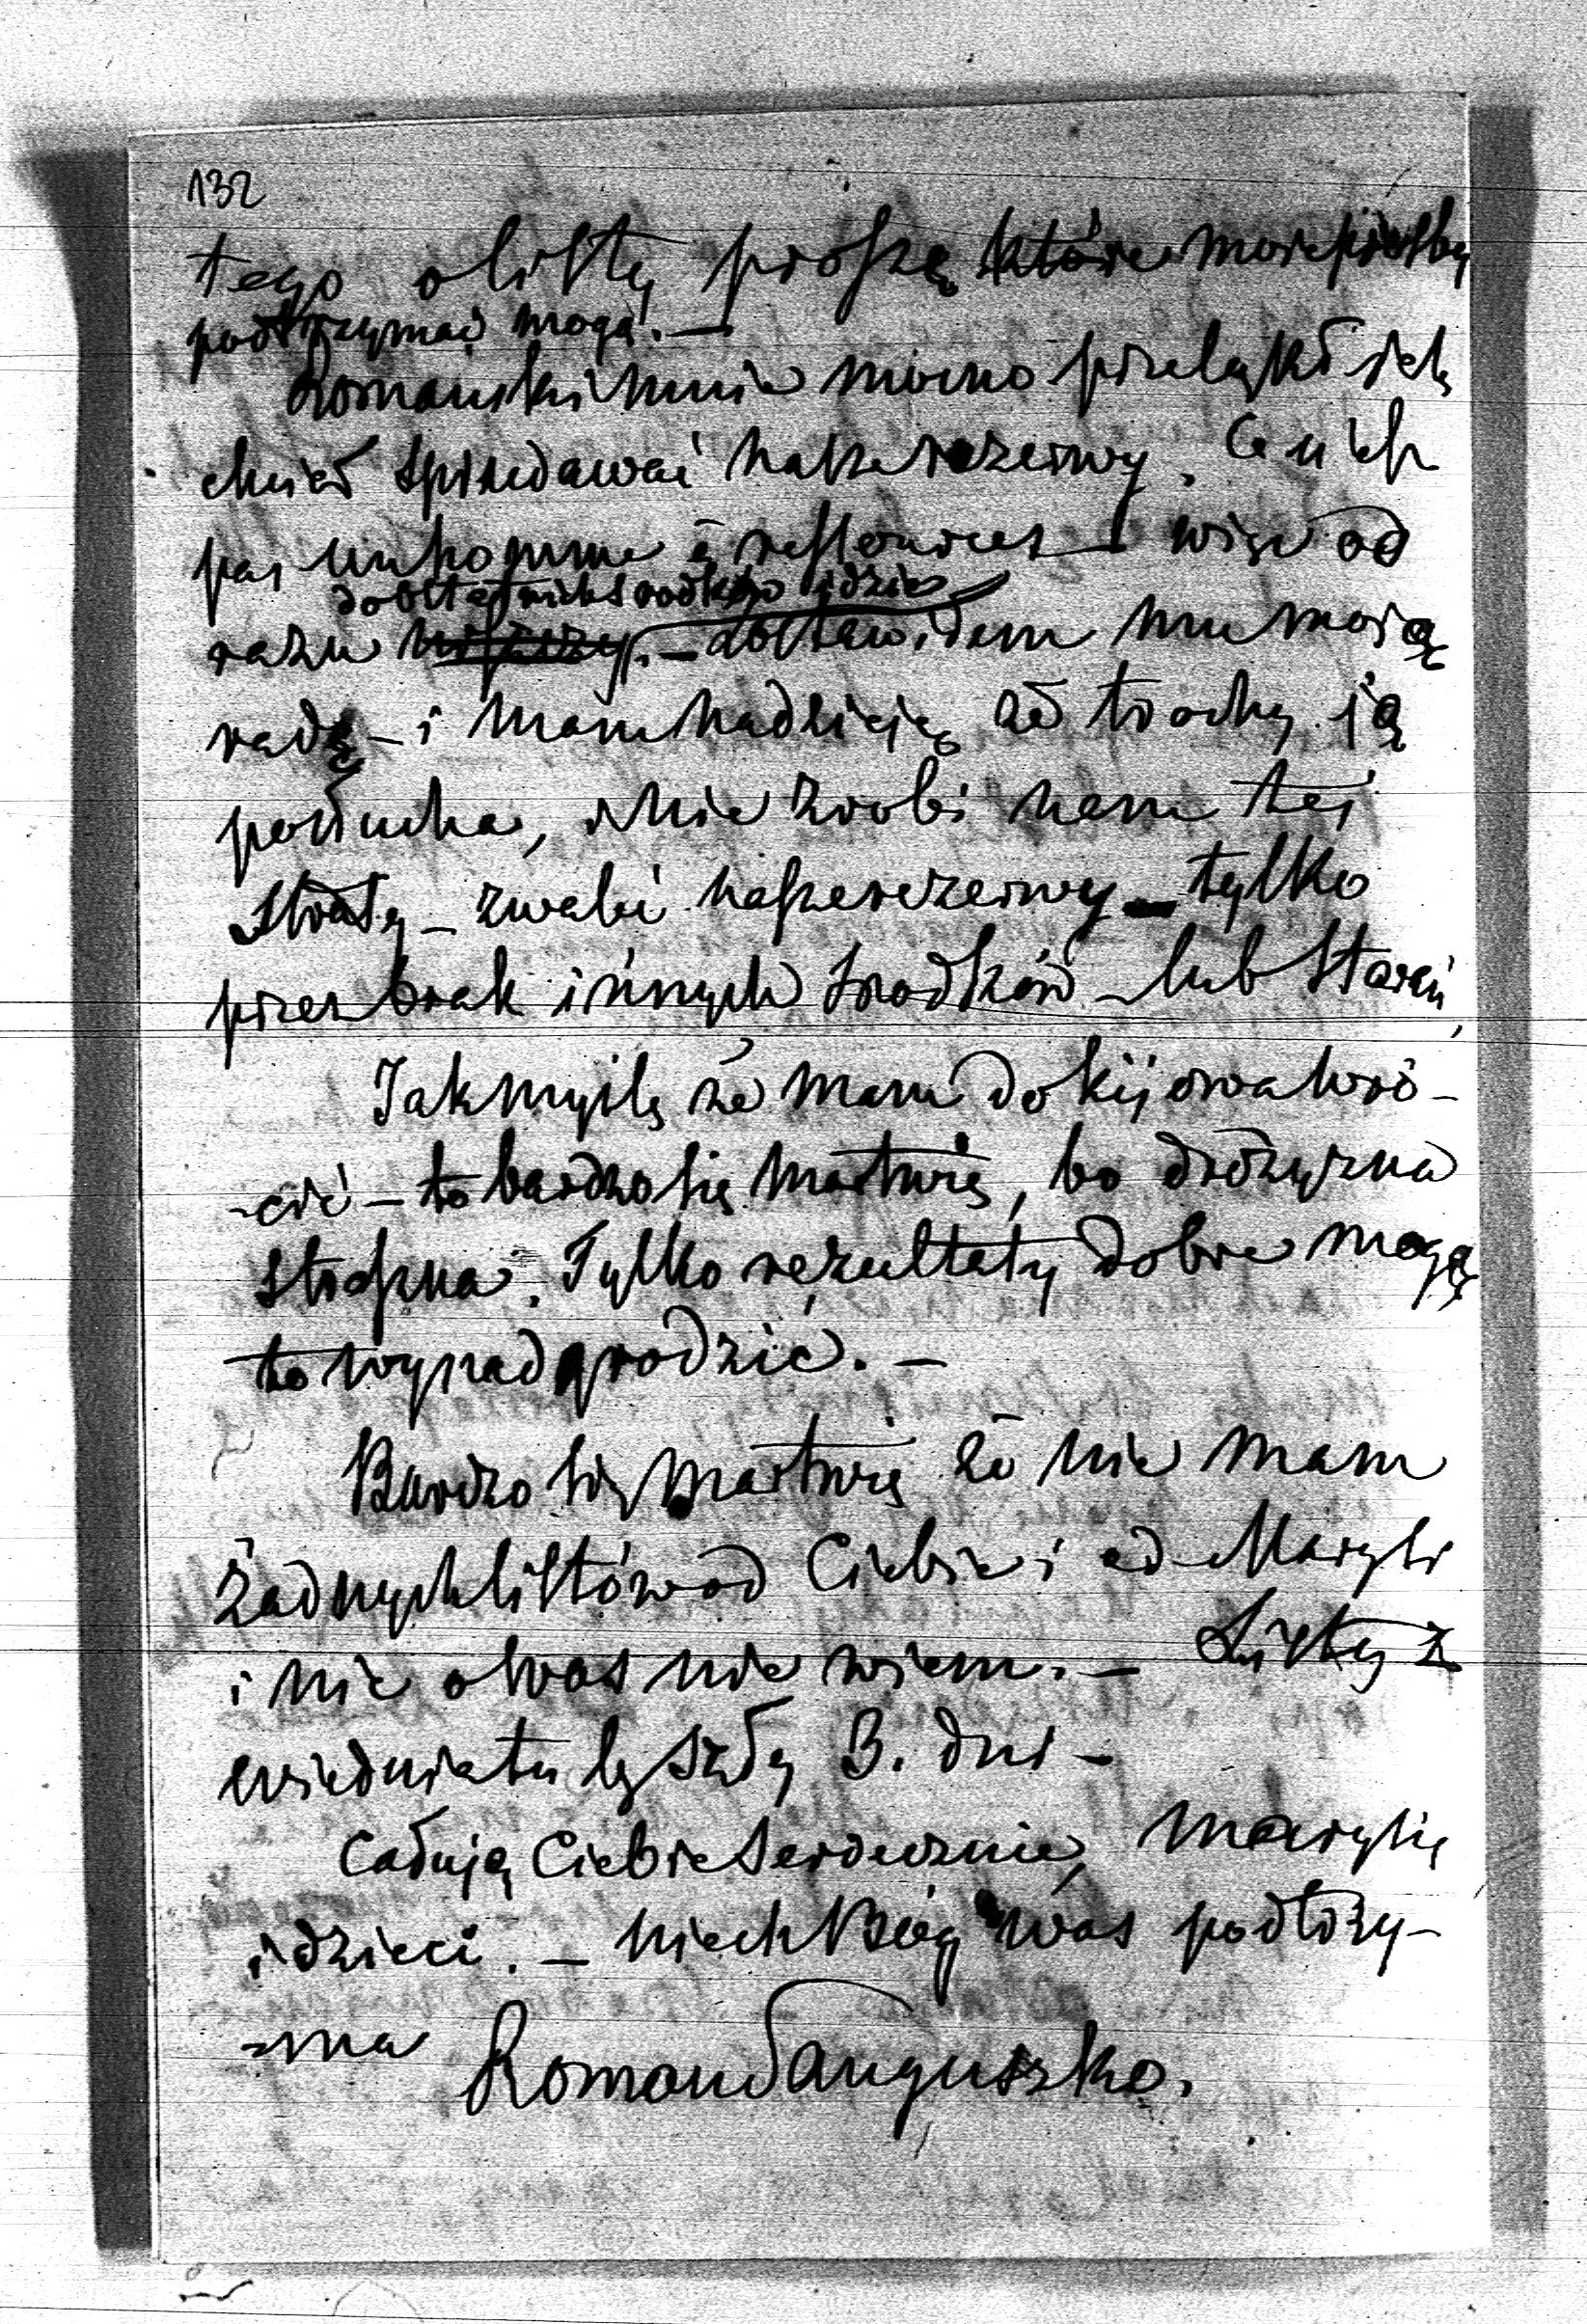 132
tego o listy proszę które moje prośby
podtrzymać mogą. —
Romanski mnie mocno przeląkł jak
chciał sprzedawać nasze rezerwy. Ce n'est
pas un homme à ressources — więc od
dostatnich środków idzie
razu — zostawiłem mu moją
radę — i mam nadzieję że trochę ją
posłucha, i nie zrobi nam tej
straty — zwalić nasze rezerwy — tylko
przez brak innych środków — lub starań,
Jak myślę że mam do Kijowa wró-
-cić — to bardzo się martwię, bo drożyzna
straszna. Tylko rezultaty dobre mogą
to wynadgrodzić. —
Bardzo się martwię że nie mam
żadnych listów od Ciebie i od Maryli
i nic o Was nie wiem. — Listy z
Wiednia tu by szły 3. dni —
Całuję Ciebie serdecznie, Marylię
i dzieci. — Niech Bóg was podtrzy-
-ma Roman Sanguszko.